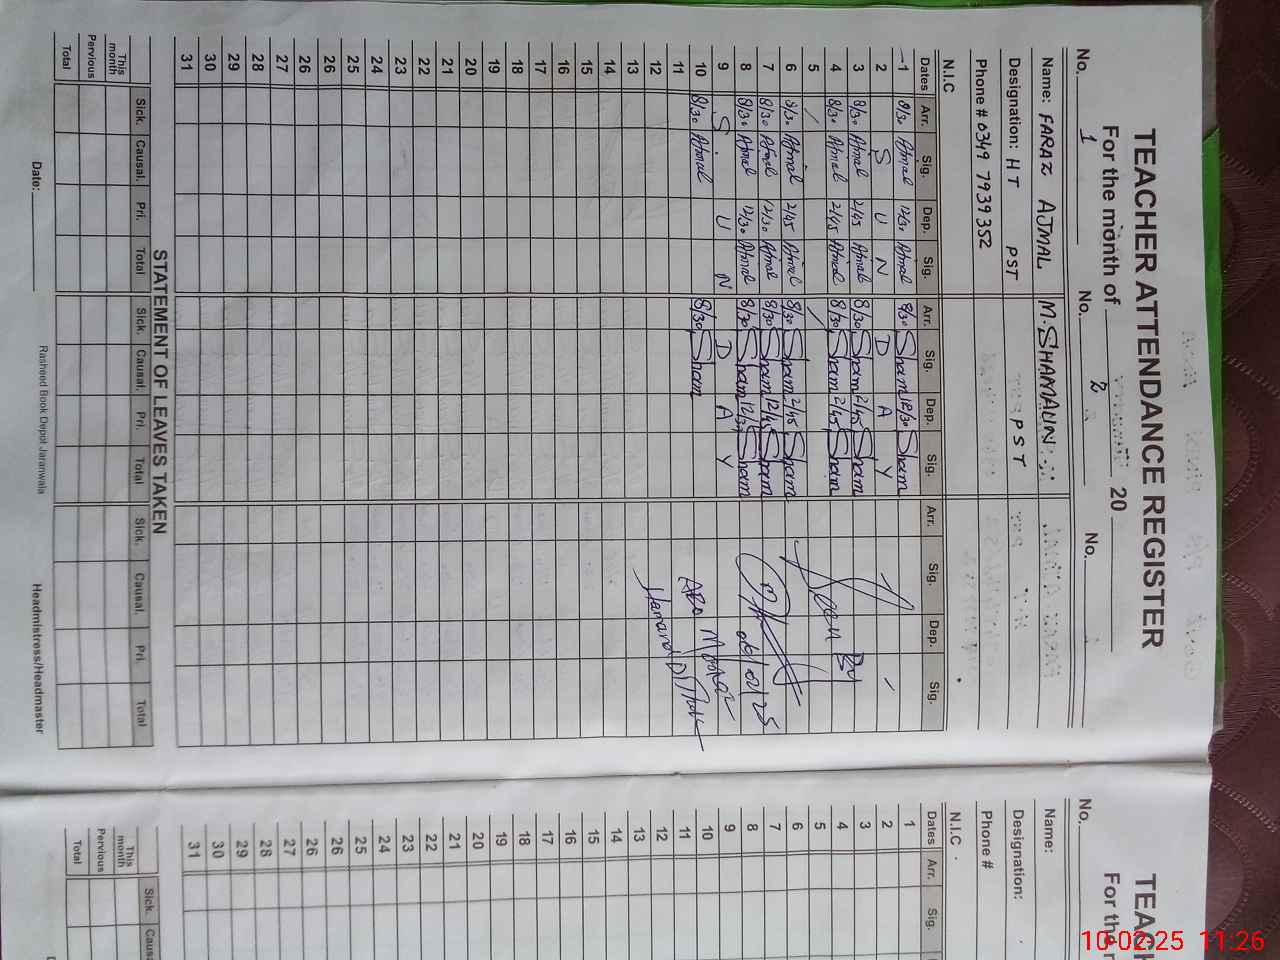 TEACHER ATTENDANCE REGISTER
For the month of 20
No. 1 No. 2 No.
Name: FARAZ AJMAL M. SHAMAUN
Designation: HT PST PST
Phone # 0349 7939352
N.I.C
Dates Arr. Sig. Dep. Sig. Arr. Sig. Dep. Sig. Arr. Sig. Dep. Sig.
1 8/30 Ajmal 12/30 Ajmal 8/30 Sham 12/30 Sham
2 S U N D A Y
3 8/30 Ajmal 2/45 Ajmal 8/30 Sham 2/45 Sham
4 8/30 Ajmal 2/45 Ajmal 8/30 Sham 2/45 Sham
5 / /
6 8/30 Ajmal 2/45 Ajmal 8/30 Sham 2/45 Sham
7 8/30 Ajmal 12/30 Ajmal 8/30 Sham 12/45 Sham
8 8/30 Ajmal 12/30 Ajmal 8/30 Sham 12/30 Sham
9 S U N D A Y
10 8/30 Ajmal 8/30 Sham
11
12
13
14
15
16
17
18
19
20
21
22
23
24
25
26
26
27
28
29
30
31
Seen By
/02/25
STATEMENT OF LEAVES TAKEN
Sick. Causal. Pri. Total Sick. Causal. Pri. Total Sick. Causal. Pri. Total
This month
Pervious
Total
Date:
Rasheed Book Depot Jaranwala
Headmistress/Headmaster
TEACH
For the m
No.
Name:
Designation:
Phone #
N.I.C
Dates Arr. Sig.
1
2
3
4
5
6
7
8
9
10
11
12
13
14
15
16
17
18
19
20
21
22
23
24
25
26
26
27
28
29
30
31
Sick. Causa
This month
Pervious
Total
10-02-25 11:26